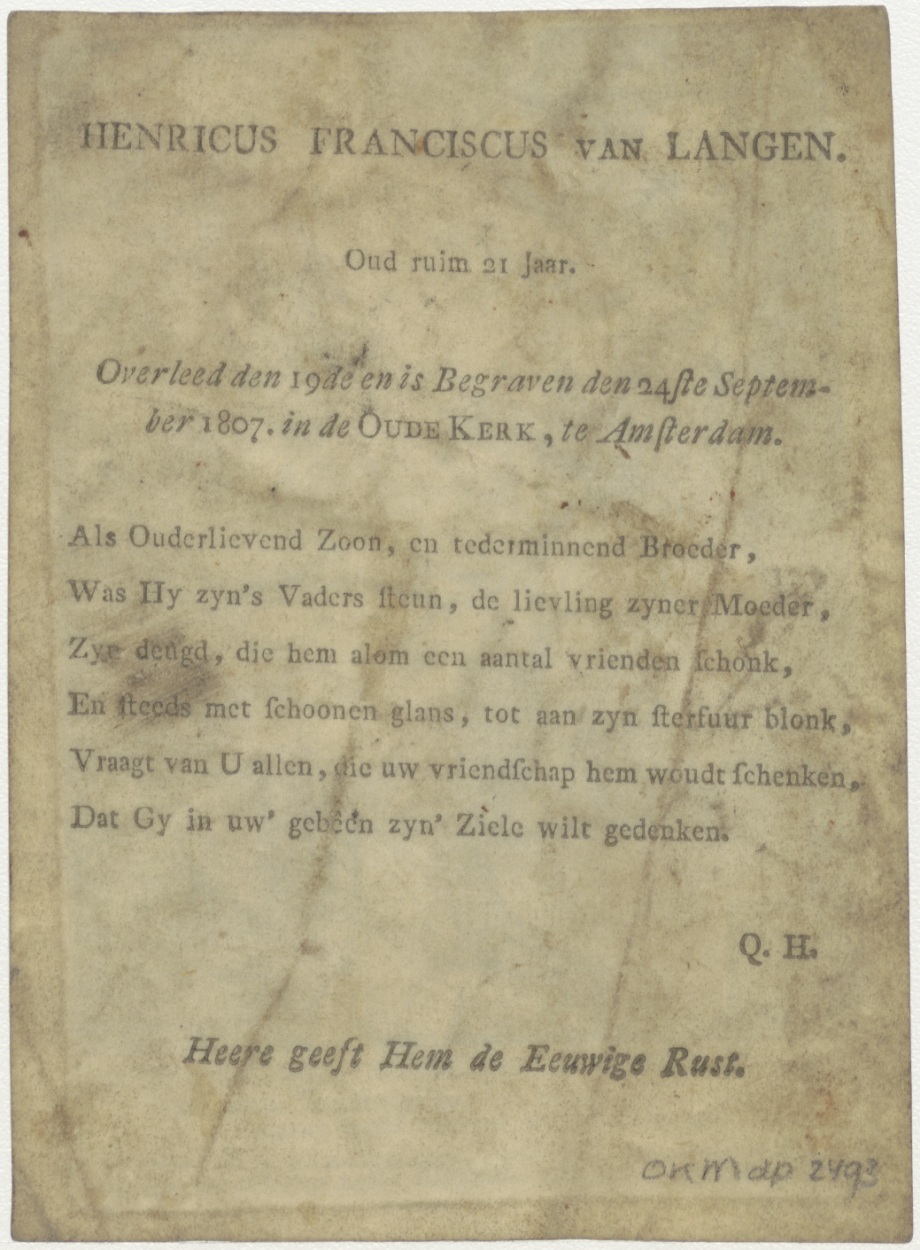 HENRICUS FRANCISCUS VAN LANGEN.
Oud ruim 21 Jaar.
Overleed den 19de en is Begraven den 24ſte Septem-
ber 1807. in de OUDE KERK, te Amſterdam.
Als Ouderlievend Zoon, en tederminnend Broeder,
Was Hy zyn's Vaders ſteun, de lievling zyner Moeder,
Zyn deugd, die hem alom een aantal vrienden ſchonk,
En ſteeds met ſchoonen glans, tot aan zyn ſterfuur blonk,
Vraagt van U allen, die uw vriendſchap hem woudt ſchenken,
Dat Gy in uw' gebeên zyn' Ziele wilt gedenken.
Q. H.
Heere geeft Hem de Eeuwige Rust.
OKM dp 2493